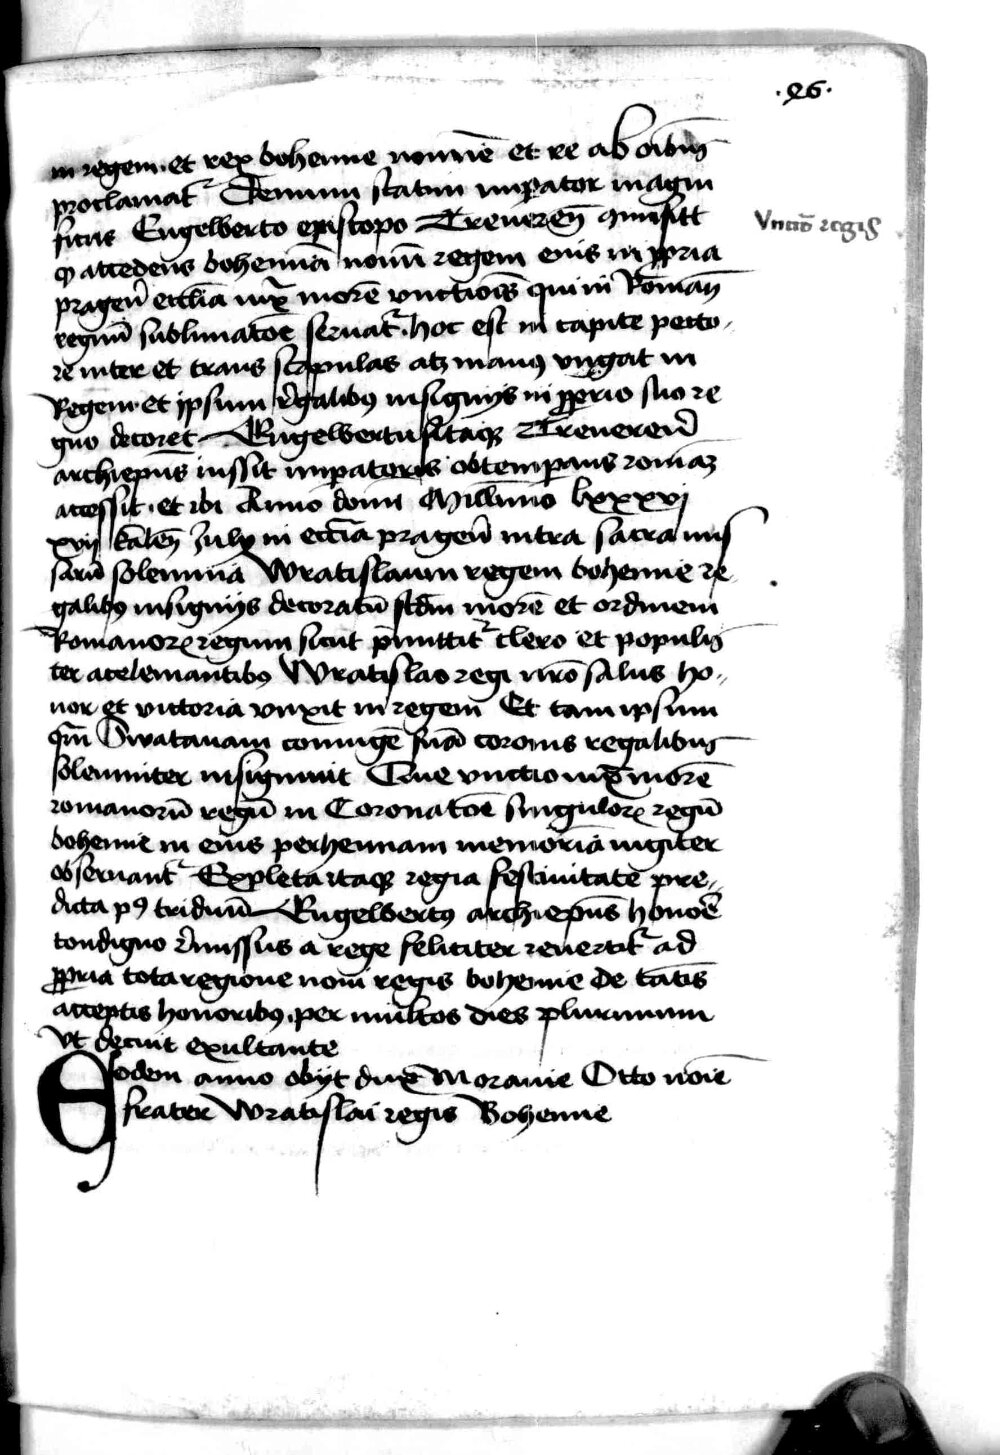 ·96·
in regem· et rex bohemie nomĩe et re ab oĩbus
proclamat᷑ Demum statim imperator magni
ficus Engelberto episcopo Treuereñ commisit
ꝙ accedens bohemiã nouũ regem eius in ꝓpria
prageñ ecclia iux᷑ morẽ vnctiois qui in Romañ
regnũ sublimatõe seruat᷑· hoc est in capite pecto-
re inter et trans scapulas atꝫ manus vngat in
Regem· et ipsum regalibus insignijs in ꝓprio suo re
gno decoret Engelbertus itaqꝫ Treuereñ
archiepũs iussit imperatoris obtemperans romaꝫ
accessit· et ibi Anno domi Millimo lxxxvj
xvij kaleñ July in ecclia prageñ intra sacra mis
sarũ solemnia Wratislaum regem bohemie re
galibus insignijs decoratũ scdm morẽ et ordinem
Romanorꝝ regum sicut premittit᷑ clero et populis
ter acclemantibus Wratislao regi nrõ salus ho-
nor et victoria vnxit in regem Et tam ipsum
qm̃ Swatauam coniugẽ suã coronis regalibus
solemniter insigniuit Que vnctio iux᷑ morẽ
romanorũ regũ in Coronatõe singulorꝝ regũ
bohemie in eius perhennam memoriã iugiter
obseruant᷑ Expleta itaqꝫ regia festiuitate pre-
dicta pꝰ triduũ Engelbertus archiepũs honoẽ
condigno dimissus a rege feliciter reuertit᷑ ad
ꝓpria tota regione noui regis bohemie de tantis
acceptis honoribus· per multos dies plurimum
vt decuit exultante
Eodem anno obijt dux Morauie Otto noĩe
frater Wratislai regis Bohemie
Vnctõ regis